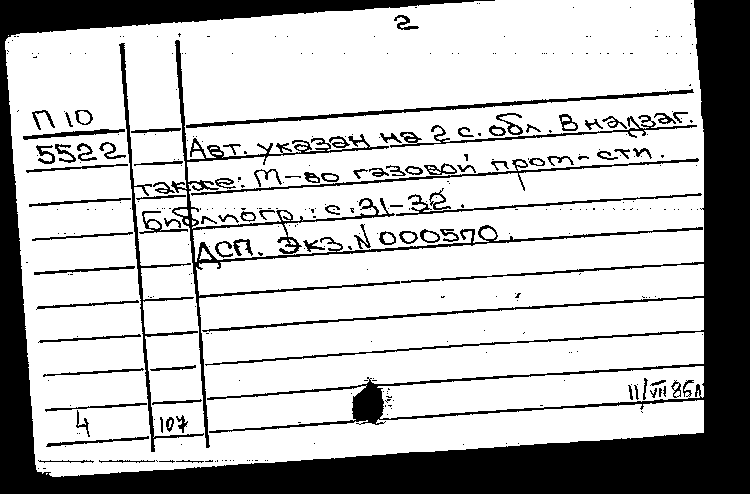 2
П10
5522 Авт. указан на 2 с. обл. В надзаг.
также: М-во газовой пром-сти.
Библиогр.: с. 31-32.
ДСП. Экз. N 000570.
4 107
11/VII 86